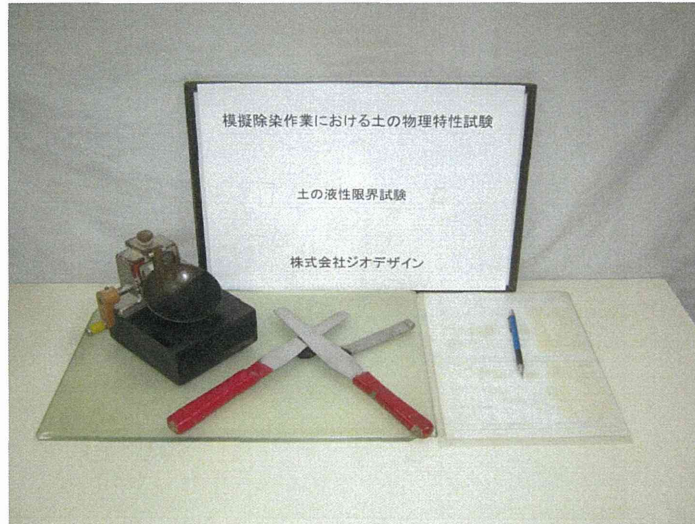 模擬除染作業における土の物理特性試験
土の液性限界試験
株式会社ジオデザイン